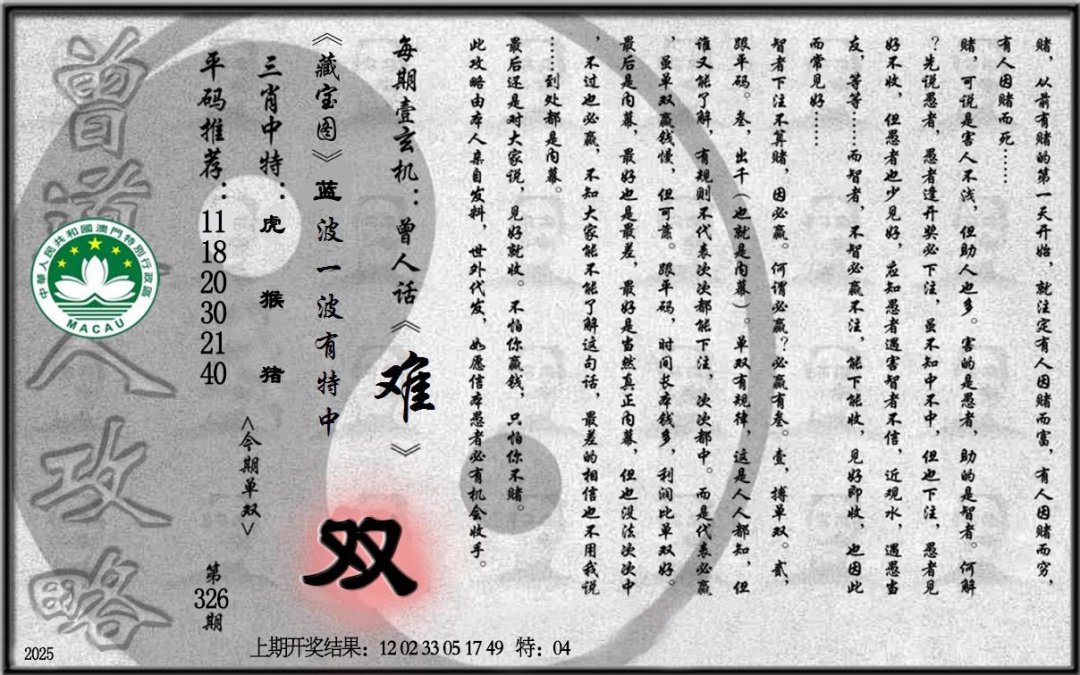 赌，从前有赌的第一天开始，就注定有人因赌而富，有人因赌而穷，
有人因赌而死……
赌，可说是害人不浅，但助人也多。害的是愚者，助的是智者。何解
？先说愚者，愚者逢开奖必下注，虽不知中不中，但也下注，愚者见
好不收，但愚者也少见好，应知愚者遇害智者不信，近观水，遇愚当
友，等等……而智者，不智必赢不注，能下能收，见好即收，也因此
而常见好……
智者下注不算赌，因必赢。何谓必赢？必赢有叁。壹，搏单双。贰，
跟单码。叁，出千（也就是内幕）。单双有规律，这是人人都知，但
谁又能了解，有规则不代表次次都能下注，次次都中。而是代表必赢
，虽单双赢钱慢，但可靠。跟单码，时间长本钱多，利润比单双好。
最后是内幕，最好也是最差，最好是当然真正内幕，但也没法次次中
，不过也必赢，不知大家能不能了解这句话，最差的相信也不用我说
……到处都是内幕。
最后还是对大家说，见好就收。不怕你赢钱，只怕你不赌。
此攻略由本人亲自发料，世外代发，如愿信本愚者必有机会收手。
每期壹玄机：曾人话《难》
《藏宝图》蓝波一波有特中
双
三肖中特：虎 猴 猪
<今期单双>
平码推荐：11 18 20 30 21 40
第326期
曾道人攻略
中華人民共和國澳門特別行政區
MACAU
2025
上期开奖结果：12 02 33 05 17 49 特：04